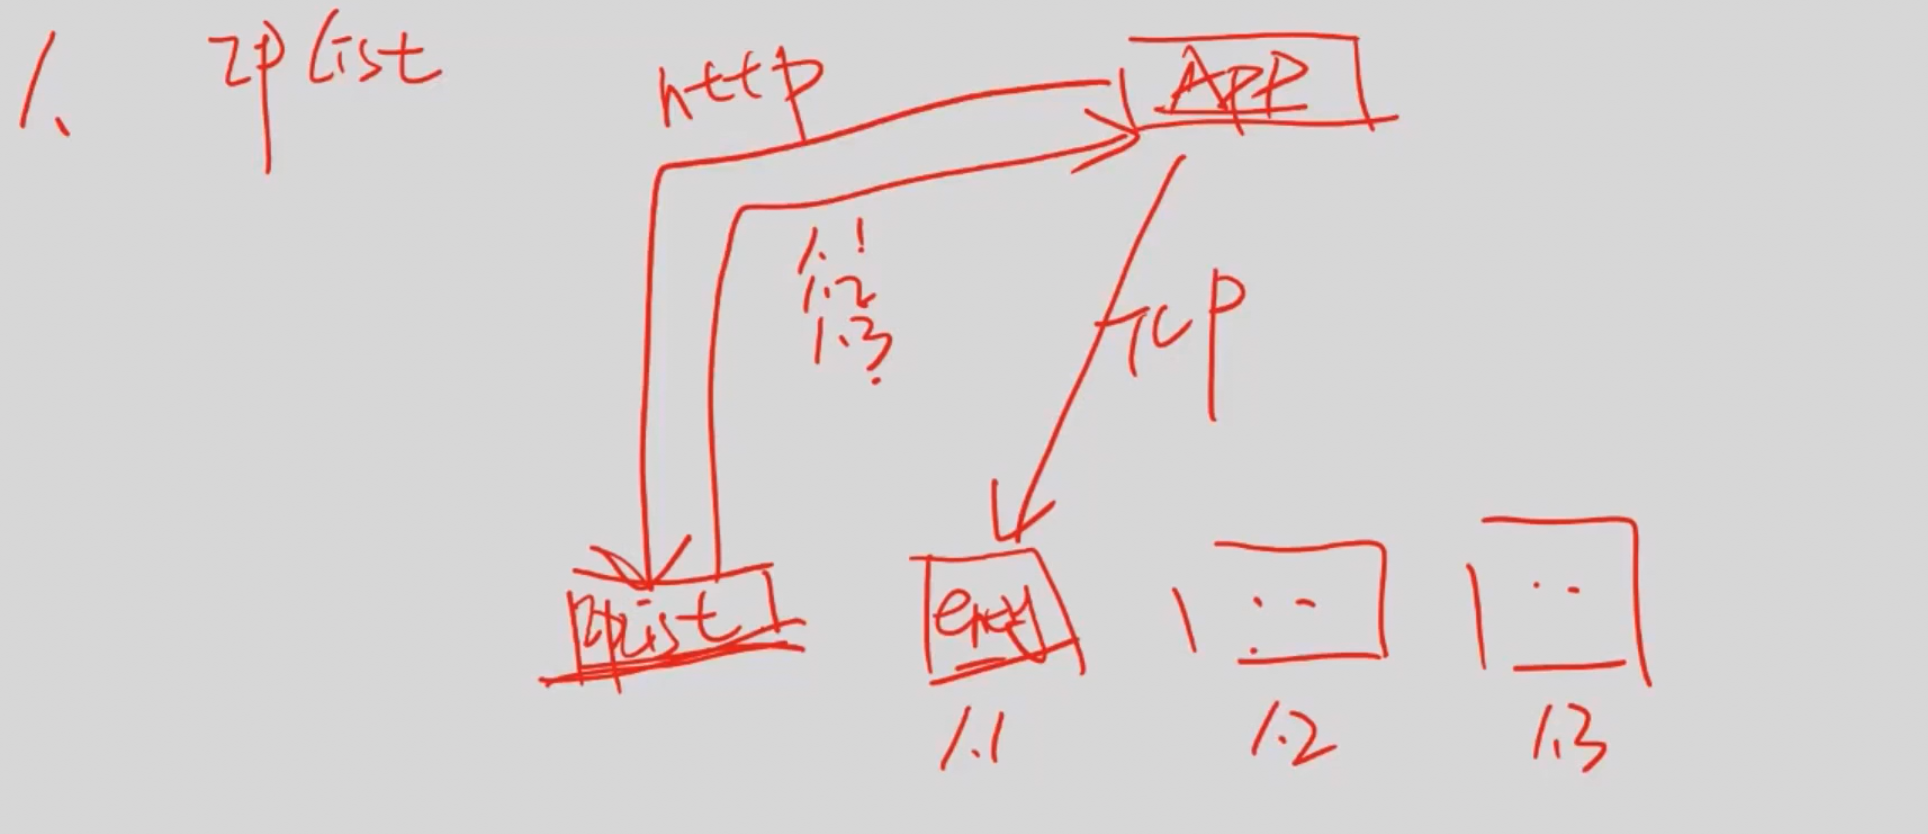 1、 ip list
http
APP
1.1
1.2
1.3
TCP
iplist
entry
1.1
1.2
1.3